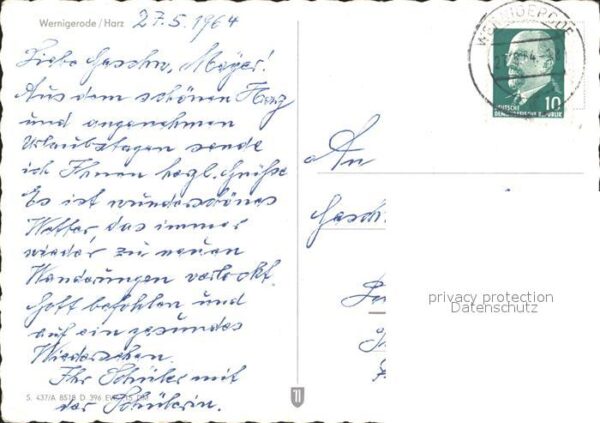 Wernigerode / Harz
27.5.1964
Liebe Geschw. Mayer!
Aus dem schönen Harz
und angenehmen
Urlaubstagen sende
ich Ihnen hrzl. Grüße
Es ist wunderschönes
Wetter, das immer
wieder zu neuen
Wanderungen verlockt.
Gott befohlen und
auf ein gesundes
Wiedersehen.
Ihr Schüler mit
der Schülerin.
S. 437/A 8518 D. 396
WERNIGERODE
10
DEUTSCHE
DEMOKRATISCHE REPUBLIK
An
Gesch.
privacy protection
Datenschutz